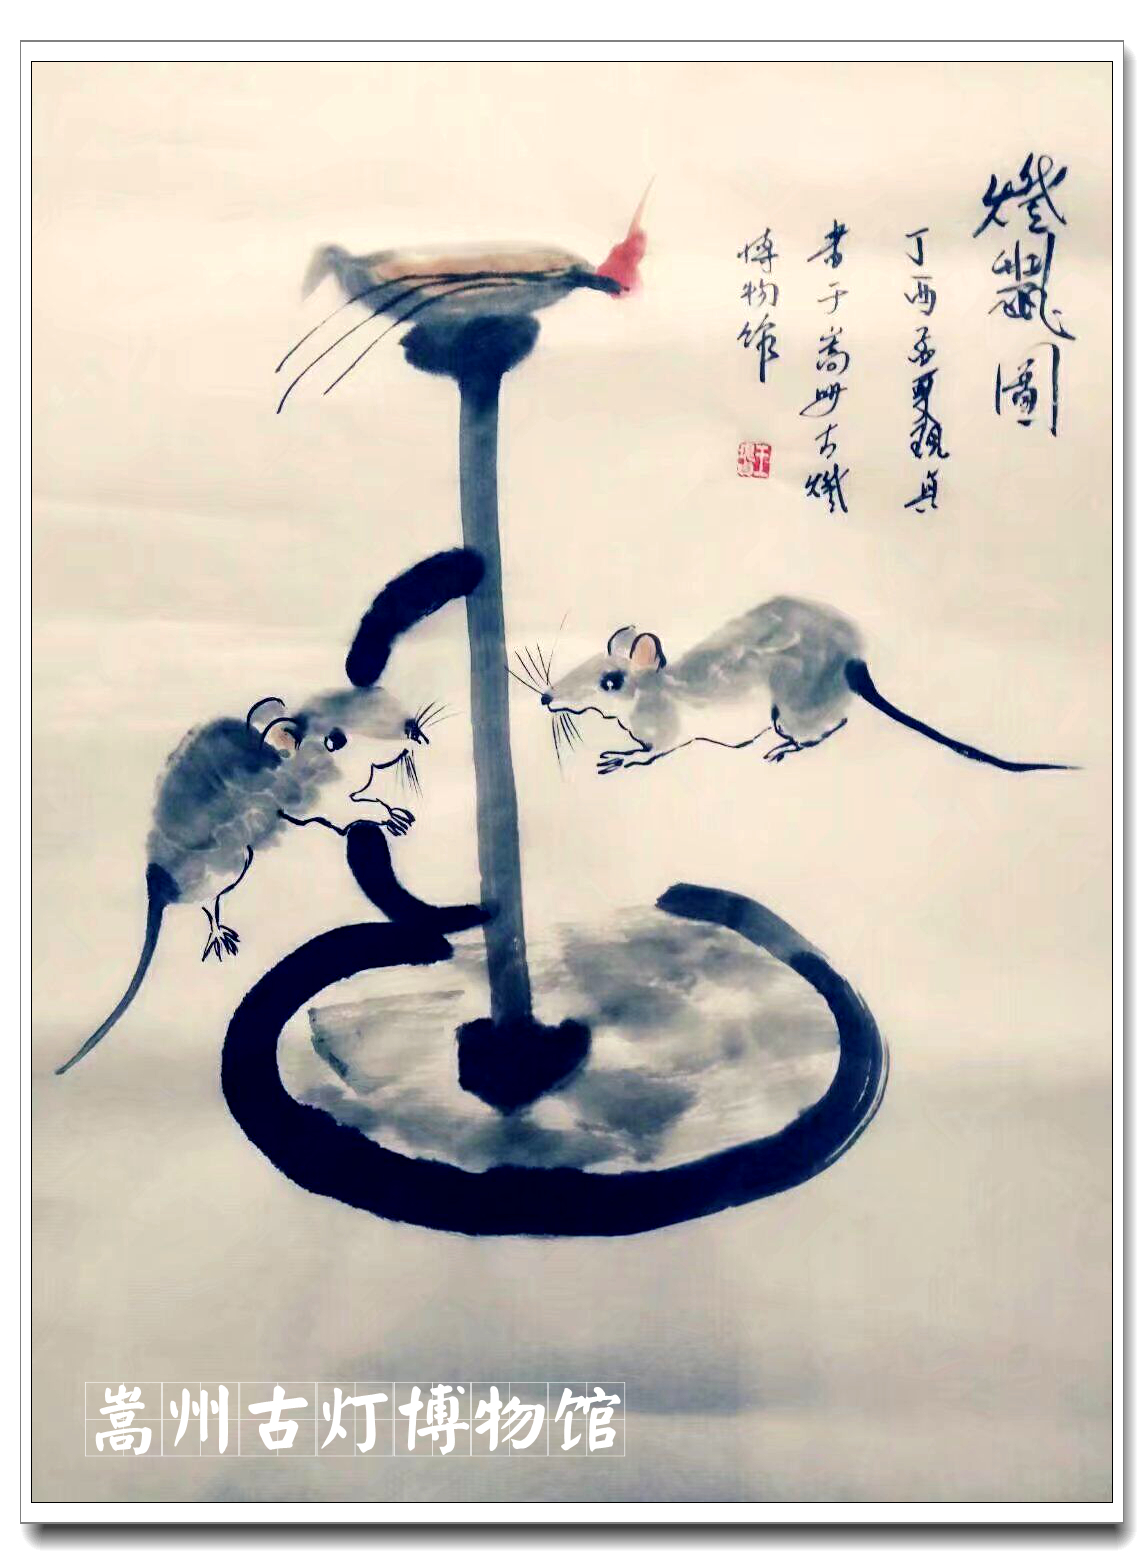 燈鼠圖
丁酉孟夏觀真
書于嵩州古燈
博物館
嵩州古灯博物馆